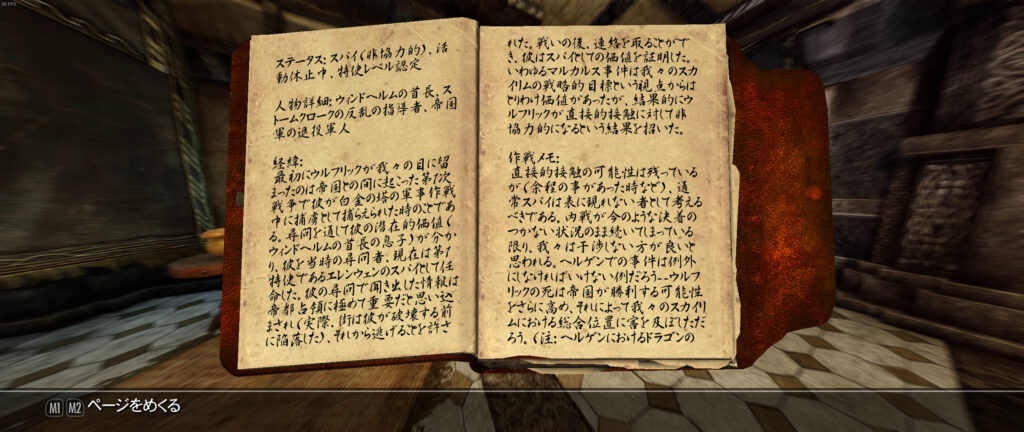 ステータス: スパイ(非協力的)、活
動休止中、特使レベル認定
人物詳細: ウィンドヘルムの首長、ス
トームクロークの反乱の指導者、帝国
軍の退役軍人
経緯:
最初にウルフリックが我々の目に留
まったのは帝国との間に起こった第1次
戦争で彼が白金の塔の軍事作戦
中に捕虜として捕らえられた時のことであ
る。尋問を通して彼の潜在的価値(
ウィンドヘルムの首長の息子)が分か
り、彼を当時の尋問者、現在は第1
特使であるエレンウェンのスパイとして任
命した。彼の尋問で聞き出した情報は
帝都占領に極めて重要だと思い込
まされ(実際、街は彼が破壊する前
に陥落した)、それから逃げることを許さ
れた。戦いの後、連絡を取ることがで
き、彼はスパイとしての価値を証明した。
いわゆるマルカルス事件は我々のスカ
イリムの戦略的目標という視点からは
とりわけ価値があったが、結果的にウ
ルフリックが直接的接触に対して非
協力的になるという結果を招いた。
作戦メモ:
直接的接触の可能性は残っている
が(余程の事があった時など)、通
常スパイは表に現れない者として考える
べきである。内戦が今のような決着の
つかない状況のまま続いてしまっている
限り、我々は干渉しない方が良いと
思われる。ヘルゲンでの事件は例外
にしなければいけない例だろう--ウルフ
リックの死は帝国が勝利する可能性
をさらに高め、それによって我々のスカイリ
ムにおける総合位置に害を及ぼしただ
ろう。(注: ヘルゲンにおけるドラゴンの
M1 M2 ページをめくる